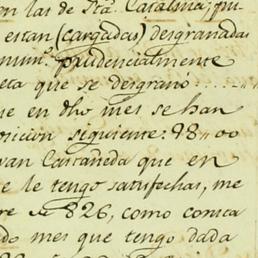 en las de Sta. Catalina, qu
estan (cargadas) desgranadas
prudencialmente
eta que se desgranó.....
ue en dho mes se han
posicion siguiente: 98,,00
van Castañeda que en
e le tengo satisfechas, me
re de 826, como consta
do mes que tengo dada